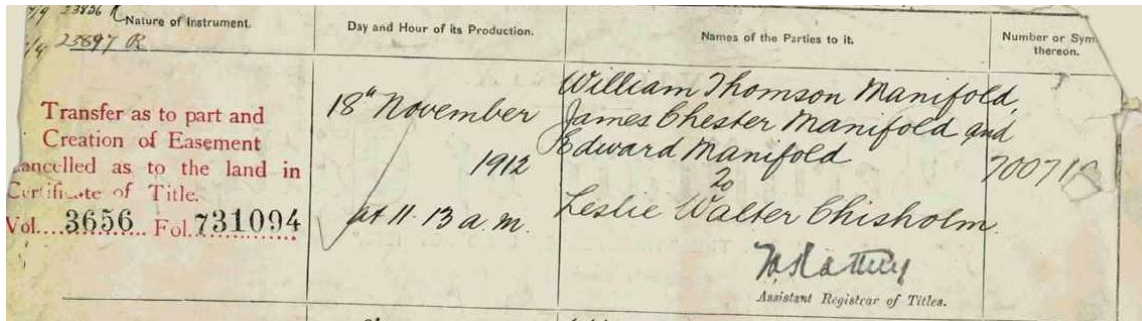 23836 R
Nature of Instrument.
Day and Hour of its Production.
Names of the Parties to it.
Number or Sym
thereon.
23897 R
Transfer as to part and
Creation of Easement
cancelled as to the land in
Certificate of Title.
Vol....3656.. Fol.731094
18th November
1912
at 11.13 a.m.
William Thomson Manifold,
James Chester Manifold and
Edward Manifold
to
Leslie Walter Chisholm
Assistant Registrar of Titles.
70071